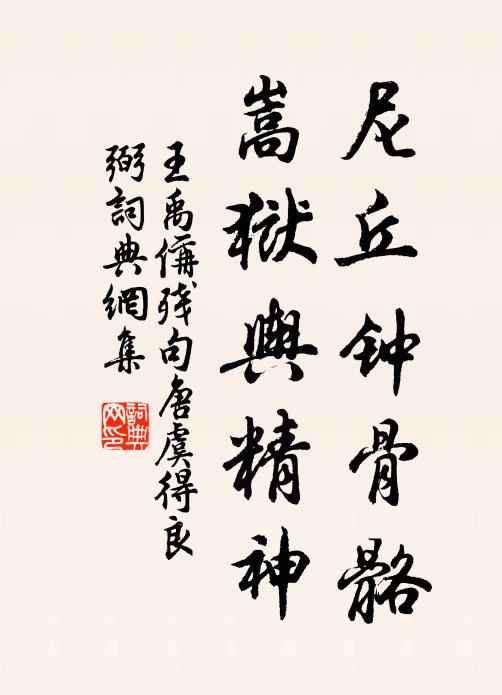 尼丘钟骨骼
嵩狱與精神
王禹偁残句唐虞得良
弼詞典網集
詞典
网印